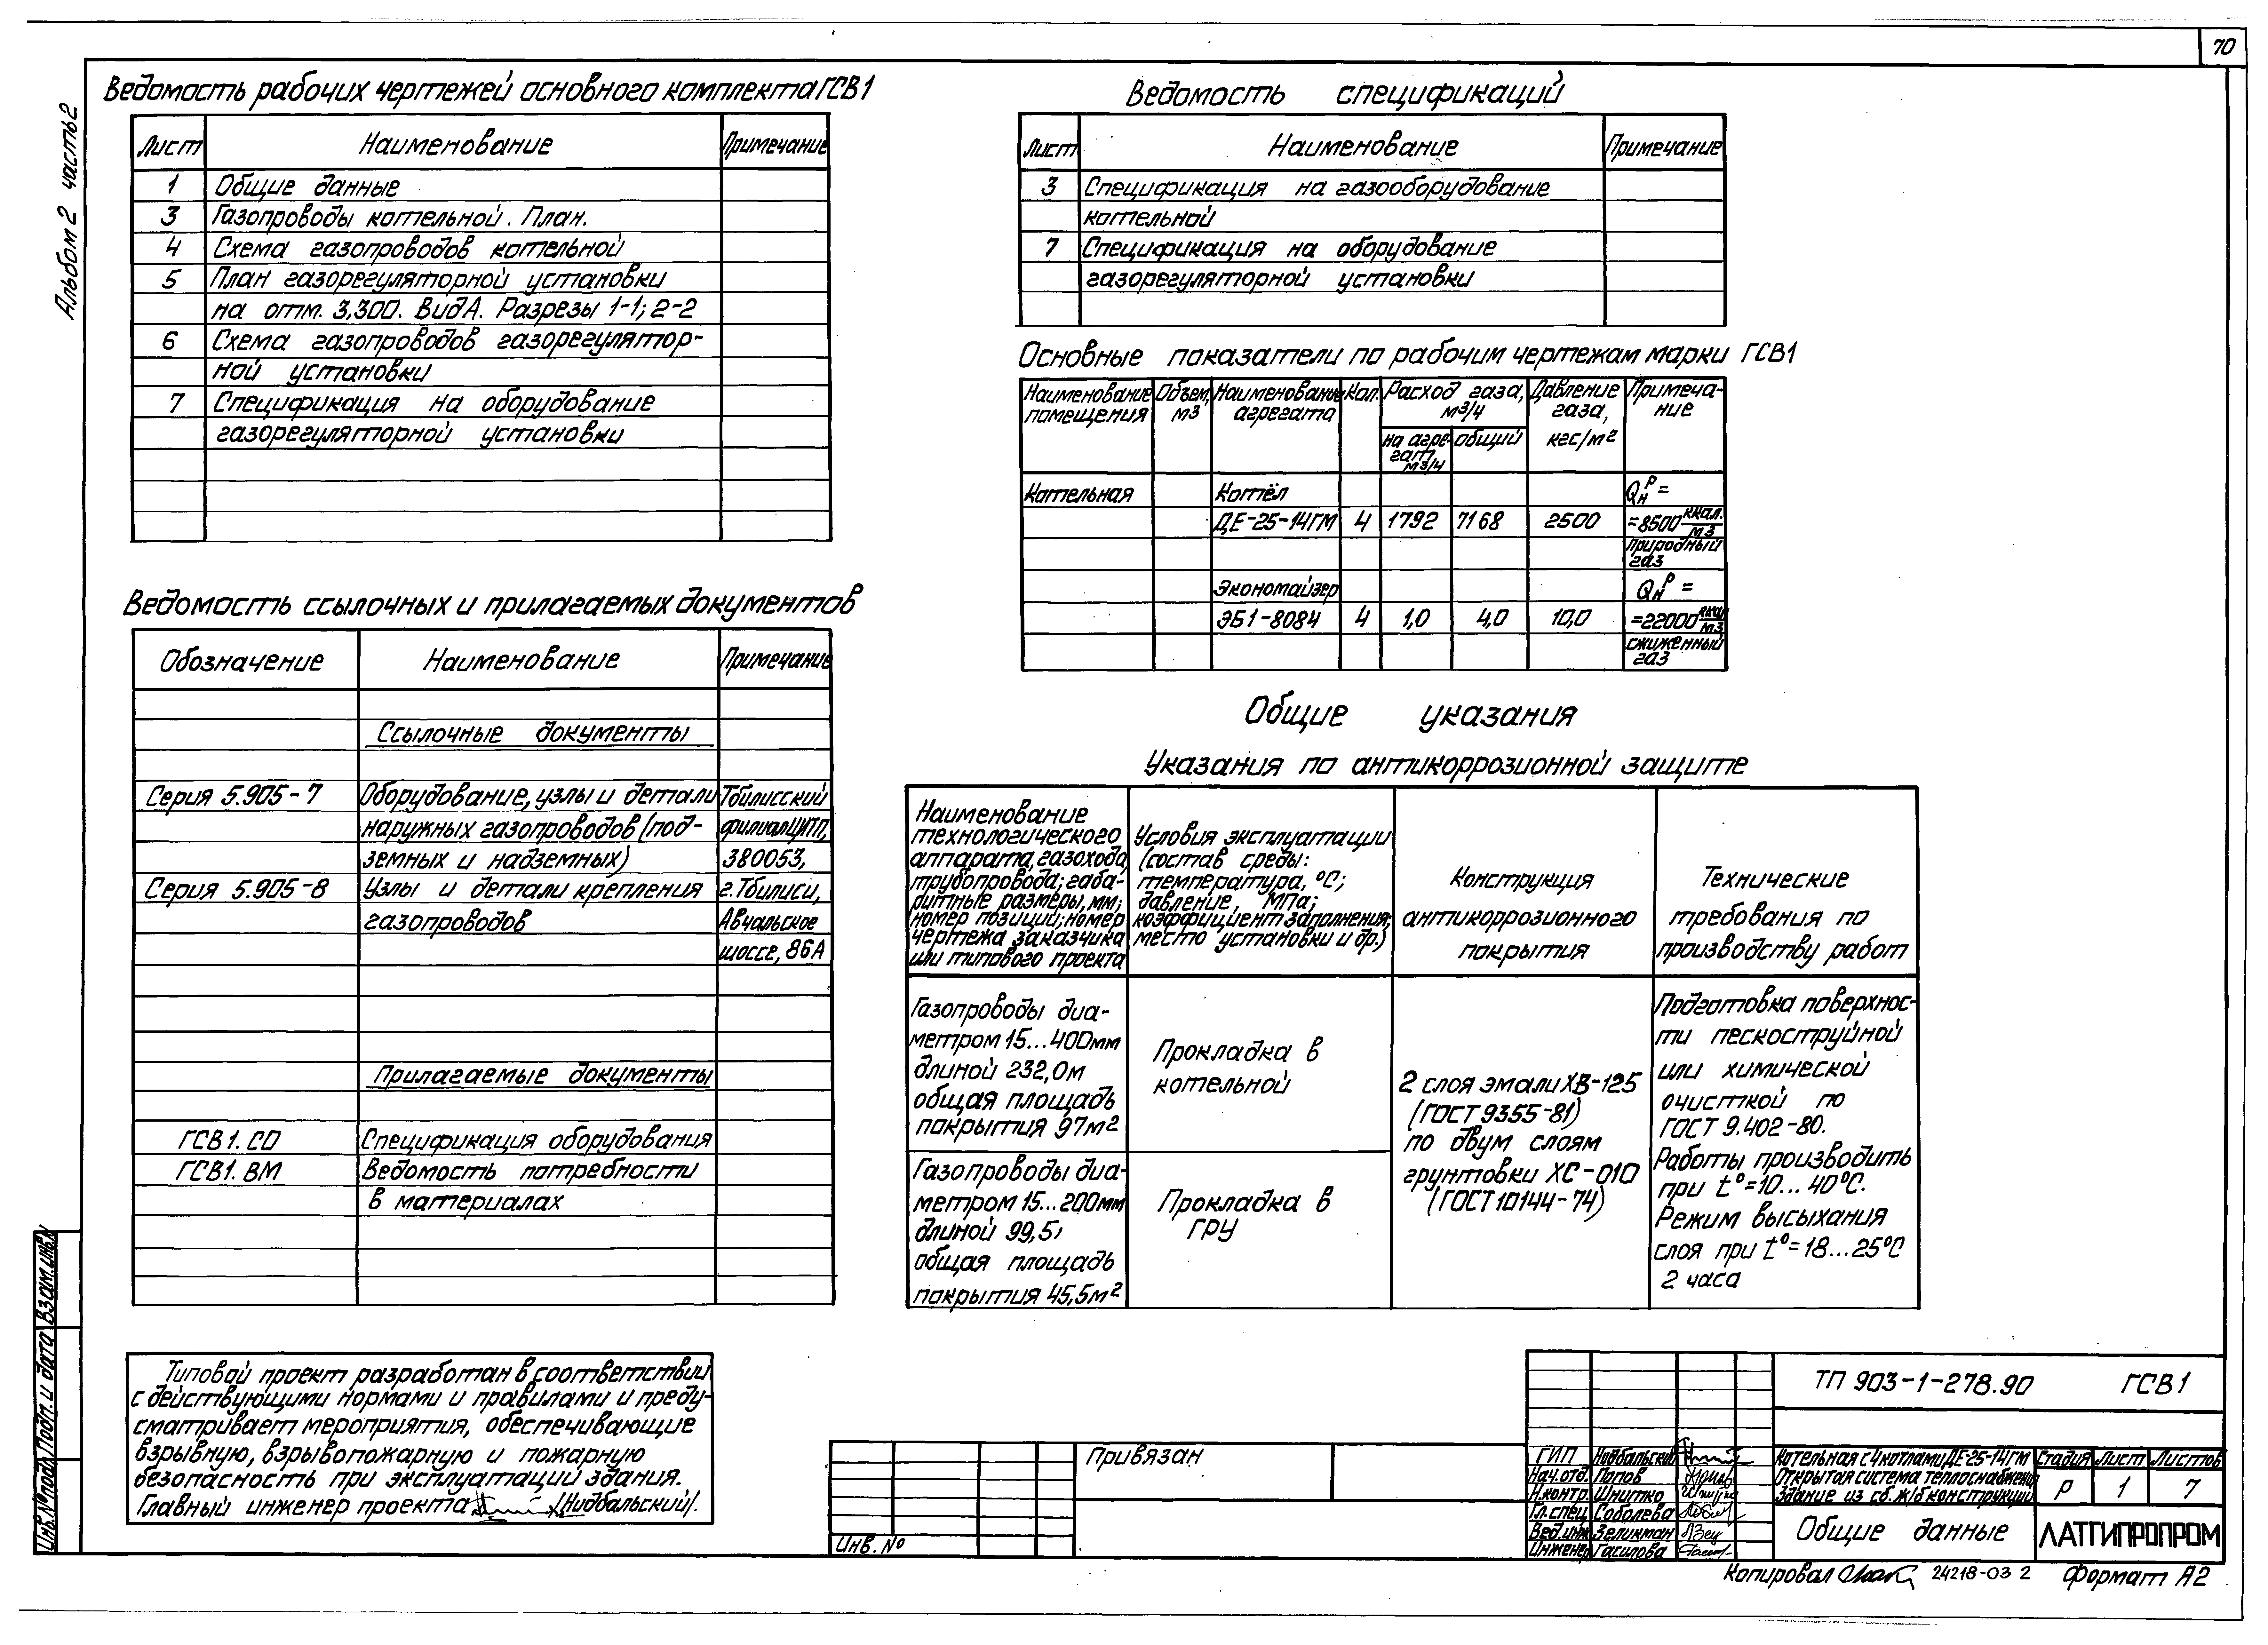 70
Альбом 2 часть 2
Ведомость рабочих чертежей основного комплекта ГСВ1
Лист Наименование Примечание
1 Общие данные
3 Газопроводы котельной. План.
4 Схема газопроводов котельной
5 План газорегуляторной установки
на отм. 3,300. Вид А. Разрезы 1-1; 2-2
6 Схема газопроводов газорегулятор-
ной установки
7 Спецификация на оборудование
газорегуляторной установки
Ведомость ссылочных и прилагаемых документов
Обозначение Наименование Примечание
Ссылочные документы
Серия 5.905-7 Оборудование, узлы и детали Тбилисский
наружных газопроводов (под- филиал ЦИТП,
земных и надземных) 380053,
Серия 5.905-8 Узлы и детали крепления г. Тбилиси,
газопроводов Авчальское
шоссе, 86А
Прилагаемые документы
ГСВ1. СО Спецификация оборудования
ГСВ1. ВМ Ведомость потребности
в материалах
Типовой проект разработан в соответствии
с действующими нормами и правилами и преду-
сматривает мероприятия, обеспечивающие
взрывную, взрывопожарную и пожарную
безопасность при эксплуатации здания.
Главный инженер проекта /Нидбальский/.
Ведомость спецификаций
Лист Наименование Примечание
3 Спецификация на газооборудование
котельной
7 Спецификация на оборудование
газорегуляторной установки
Основные показатели по рабочим чертежам марки ГСВ1
Наименование помещения Объем, м3 Наименование агрегата Кол. Расход газа, м3/ч Давление газа, кгс/м2 Примеча-
ние
на агре-
гат, м3/ч общий
Котельная Котёл Qнр =
ДЕ-25-14ГМ 4 1792 7168 2500 =8500 ккал./м3
природный
газ
Экономайзер Qнр =
ЭБ1-808Ч 4 1,0 4,0 10,0 =22000 ккал/м3
сжиженный
газ
Общие указания
Указания по антикоррозионной защите
Наименование
технологического
аппарата, газохода,
трубопровода; габа-
ритные размеры, мм;
номер позиций; номер
чертежа заказчика
или типового проекта
Условия эксплуатации
(состав среды:
температура, °С;
давление, МПа;
коэффициент заполнения;
место установки и др.)
Конструкция
антикоррозионного
покрытия
Технические
требования по
производству работ
Газопроводы диа-
метром 15...400мм
длиной 232,0м
общая площадь
покрытия 97м2
Прокладка в
котельной
Газопроводы диа-
метром 15...200мм
длиной 99,5
общая площадь
покрытия 45,5м2
Прокладка в
ГРУ
2 слоя эмали ХВ-125
(ГОСТ 9355-81)
по двум слоям
грунтовки ХС-010
(ГОСТ 10144-74)
Подготовка поверхнос-
ти пескоструйной
или химической
очисткой по
ГОСТ 9.402-80.
Работы производить
при t°=10...40°С.
Режим высыхания
слоя при t°=18...25°С
2 часа
Инв.№подл. Подп. и дата Взам.инв.№
Привязан
Инв. №
ТП 903-1-278.90 ГСВ1
ГИП Нидбальский
Нач.отд. Попов
Н.контр. Шнитко
Гл.спец. Соболева
Вед.инж Зеликман
Инженер Гасилова
Котельная с 4 котлами ДЕ-25-14ГМ
Открытая система теплоснабжения
Здание из сб.ж/б конструкций
Стадия Лист Листов
Р 1 7
Общие данные
ЛАТГИПРОПРОМ
Копировал 24218-03 2 Формат А2